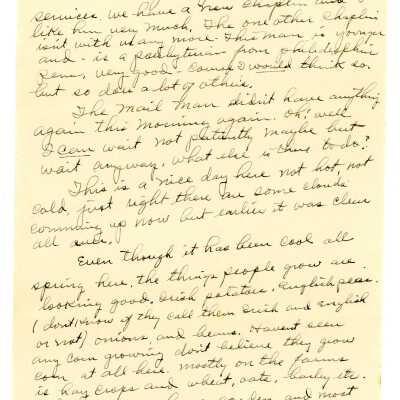 services. we have a new Chaplin and I
like him very much. The one other Chaplin
isn't with us any more. This man is younger
and - is a presbyterian from Philidelphia
Penn, very good - course I would think so.
but so does a lot of others.
The Mail Man didn't have anything
again this Morning again. Oh! well
I can wait not patiently maybe but
wait anyway. what else is there to do?
This is a nice day here not hot, not
cold, just right there are some clouds
comming up now but earlier it was clear
all over.
Even though it has been cool all
spring here, the things people grow are
looking good, Irish potatoes, English peas.
(don't know if they call them Irish and English
or not) onions, and beans. Havent seen
any corn growing dont believe they grow
corn at all here. mostly on the farms
is hay crops and wheat, oats, barley etc.
garden and most